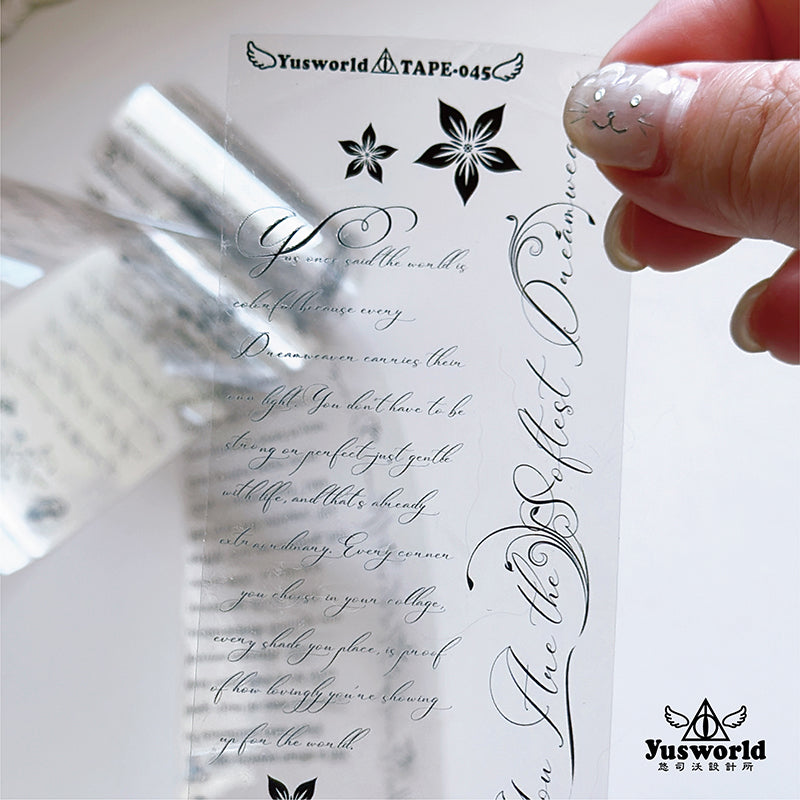 Yusworld TAPE-045
Yus once said the world is
colorful because every
Dreamweaver carries their
own light. You don't have to be
strong or perfect—just gentle
with life, and that's already
extraordinary. Every corner
you choose in your collage,
every shade you place, is proof
of how lovingly you're showing
up for the world.
You Are the Softest Dreamwea
Yusworld
悠司沃設計所